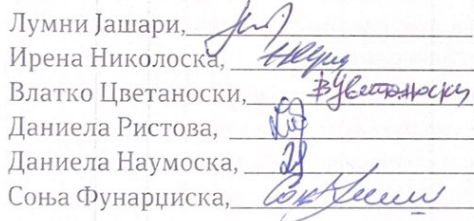 Лумни Јашари,
Ирена Николоска,
Влатко Цветаноски, ВЦветаноски
Даниела Ристова,
Даниела Наумоска,
Соња Фунарџиска,